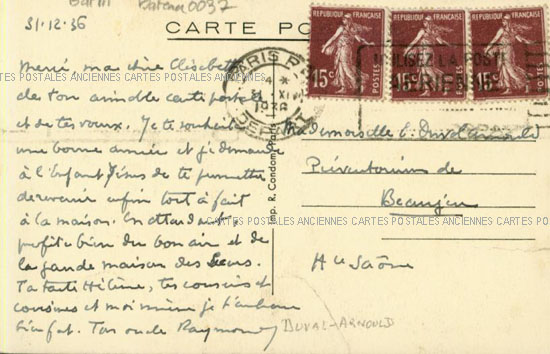 Patena 0037
31.12.36
CARTE PO
RÉPUBLIQUE FRANÇAISE RÉPUBLIQUE FRANÇAISE RÉPUBLIQUE FRANÇAISE
15c 15c 15c
POSTES POSTES POSTES
PARIS
31 XII
1936
DEPART
UTILISEZ LA POSTE
AERIENNE
Merci, ma chère Elisabeth
CARTES POSTALES ANCIENNES CARTES POSTALES ANCIENNES CARTES POSTALES ANCIENNES CARTES POSTALES
de ton aimable carte postale
et de tes vœux. Je te souhaite
une bonne année et je demande
à l'Enfant Jésus de te permettre
de revenir enfin tout à fait
à la maison. En attendant,
profite bien du bon air et de
la grande maison des Sœurs.
Ta tante Hélène, tes cousins et
cousines et moi même je t'embrasse
bien fort. Ton oncle Raymond
DUVAL-ARNOULD
Imp. R. Condom, Paris
Mademoiselle E. Duval Arnould
Préventorium de
Beaujeu
CARTES POSTALES ANCIENNES CARTES POSTALES ANCIENNES CARTES POSTALES ANCIENNES CARTES POSTALES
Hte Saône